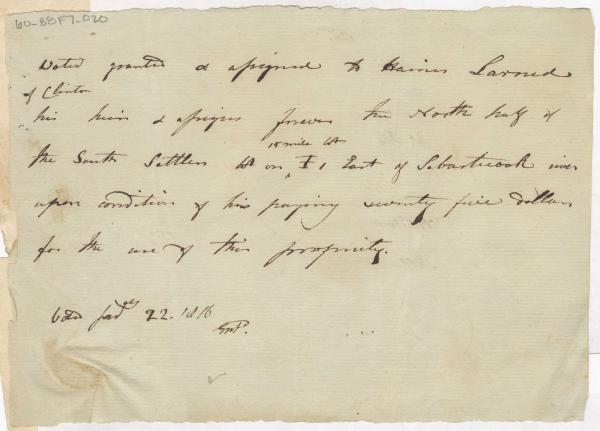 60-88F7-020
Voted granted & assigned to Haines Larned
of Clinton
his heirs & assigns forever the North half of
15 mile lot
the South Settlers lot on I, East of Sebasticook river
upon condition of his paying seventy five dollars
for the use of this propriety.
22. 1816